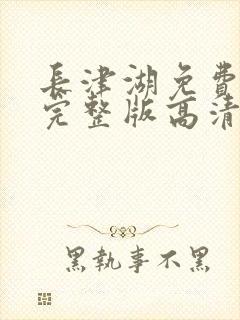 長津湖免費
完整版高清
黑執事不黑